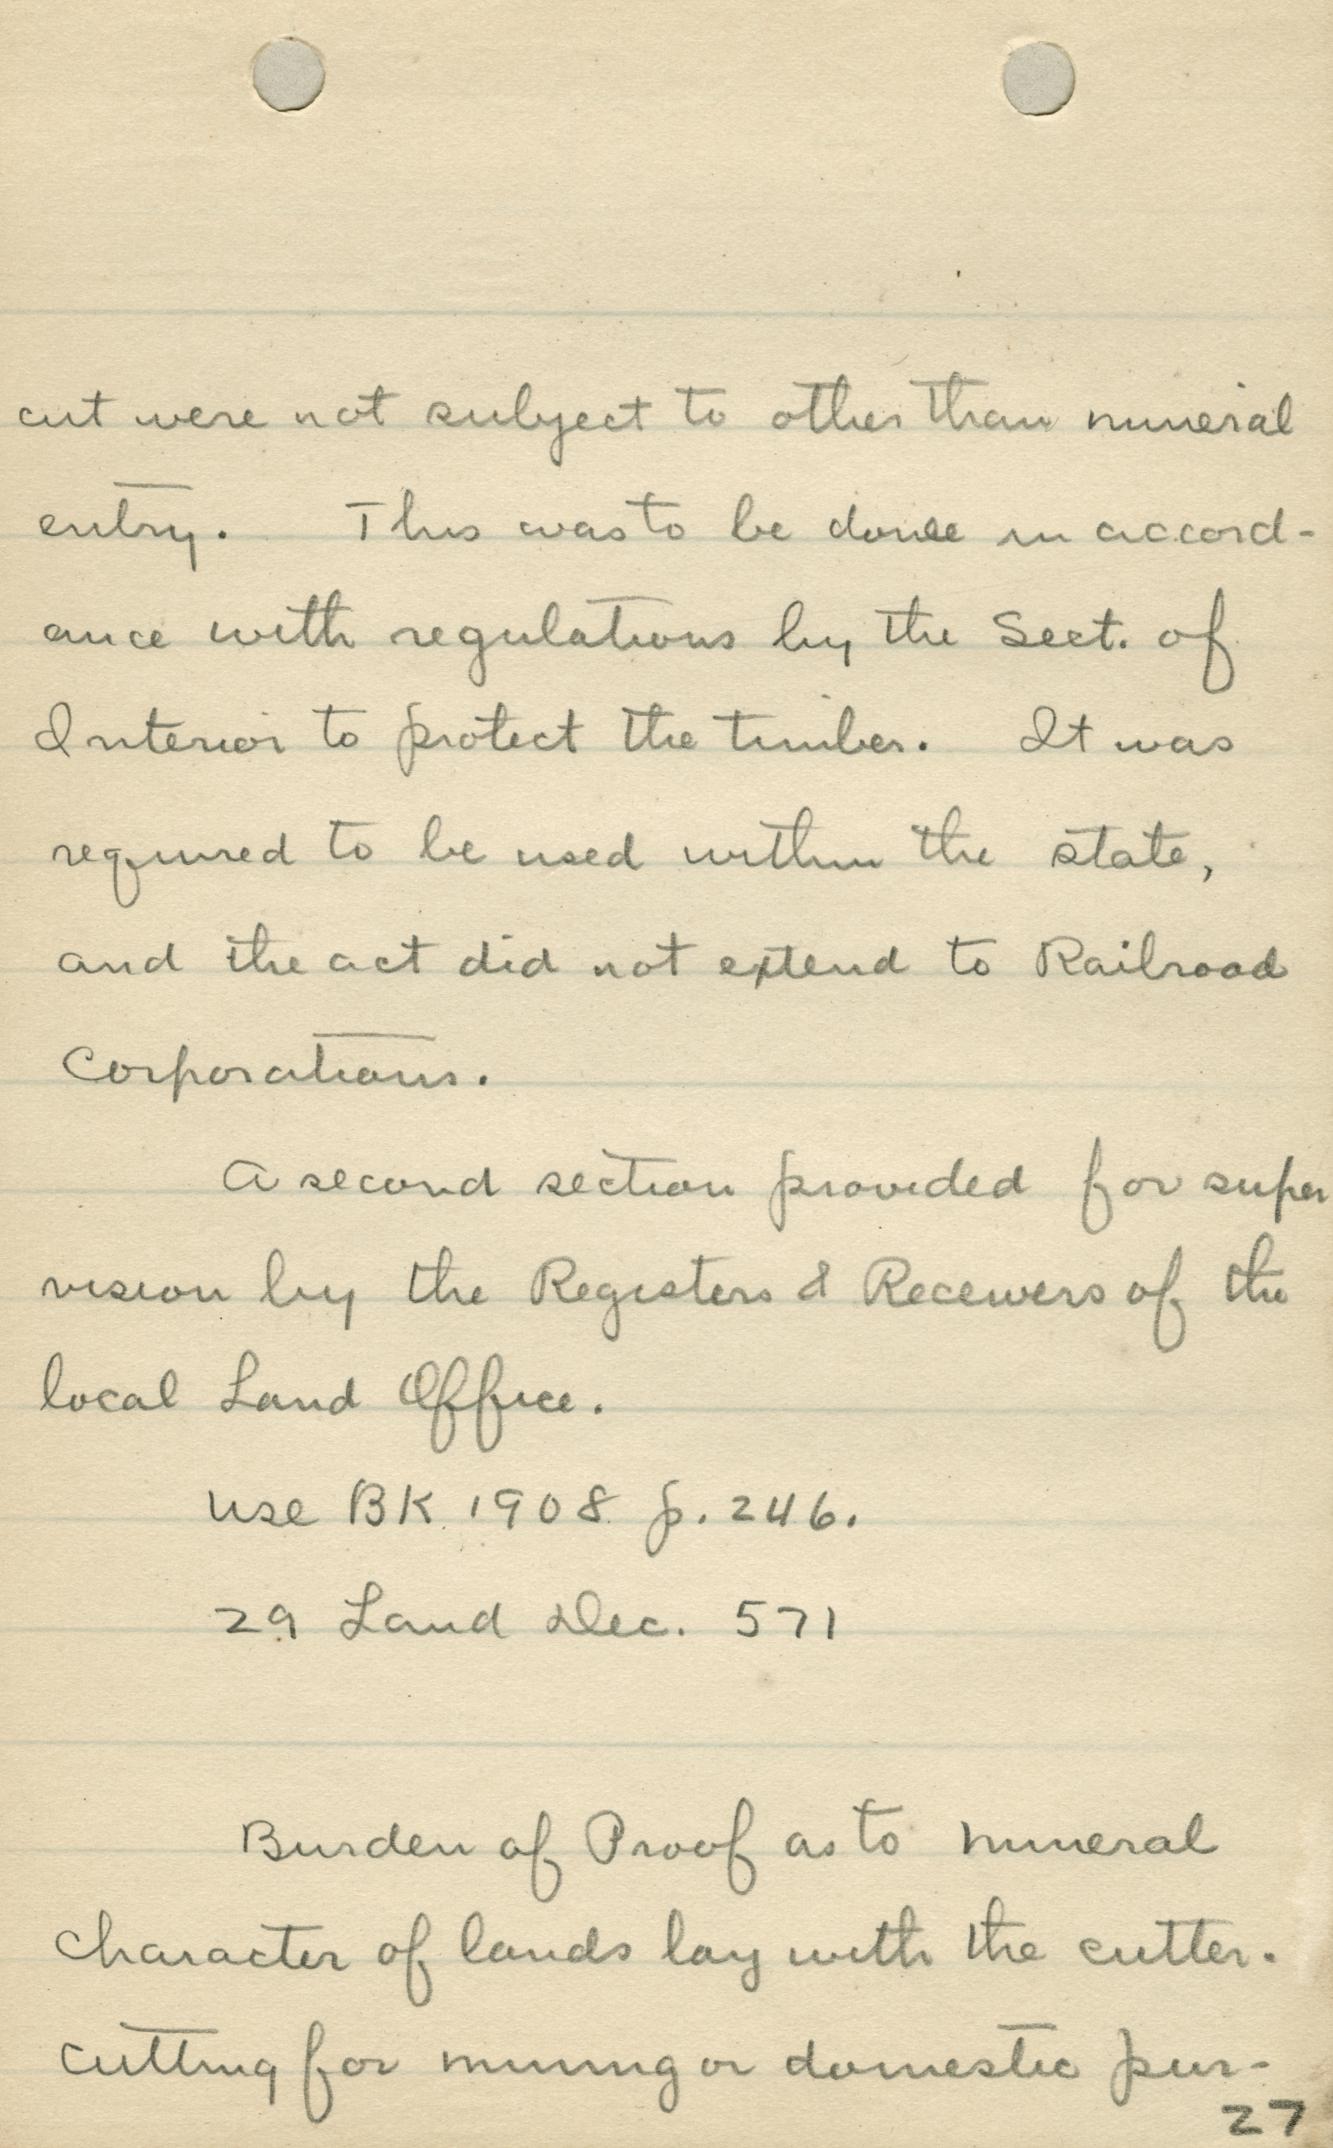 cut were not subject to other than mineral
entry. This was to be done in accord-
ance with regulations by the Sect. of
Interior to protect the timber. It was
required to be used within the state,
and the act did not extend to Railroad
Corporations.
A second section provided for super
vision by the Registers & Receivers of the
local Land Office.
Use BK 1908 p. 246.
29 Land Dec. 571
Burden of Proof as to mineral
character of lands lay with the cutter.
Cutting for mining or domestic pur-
27